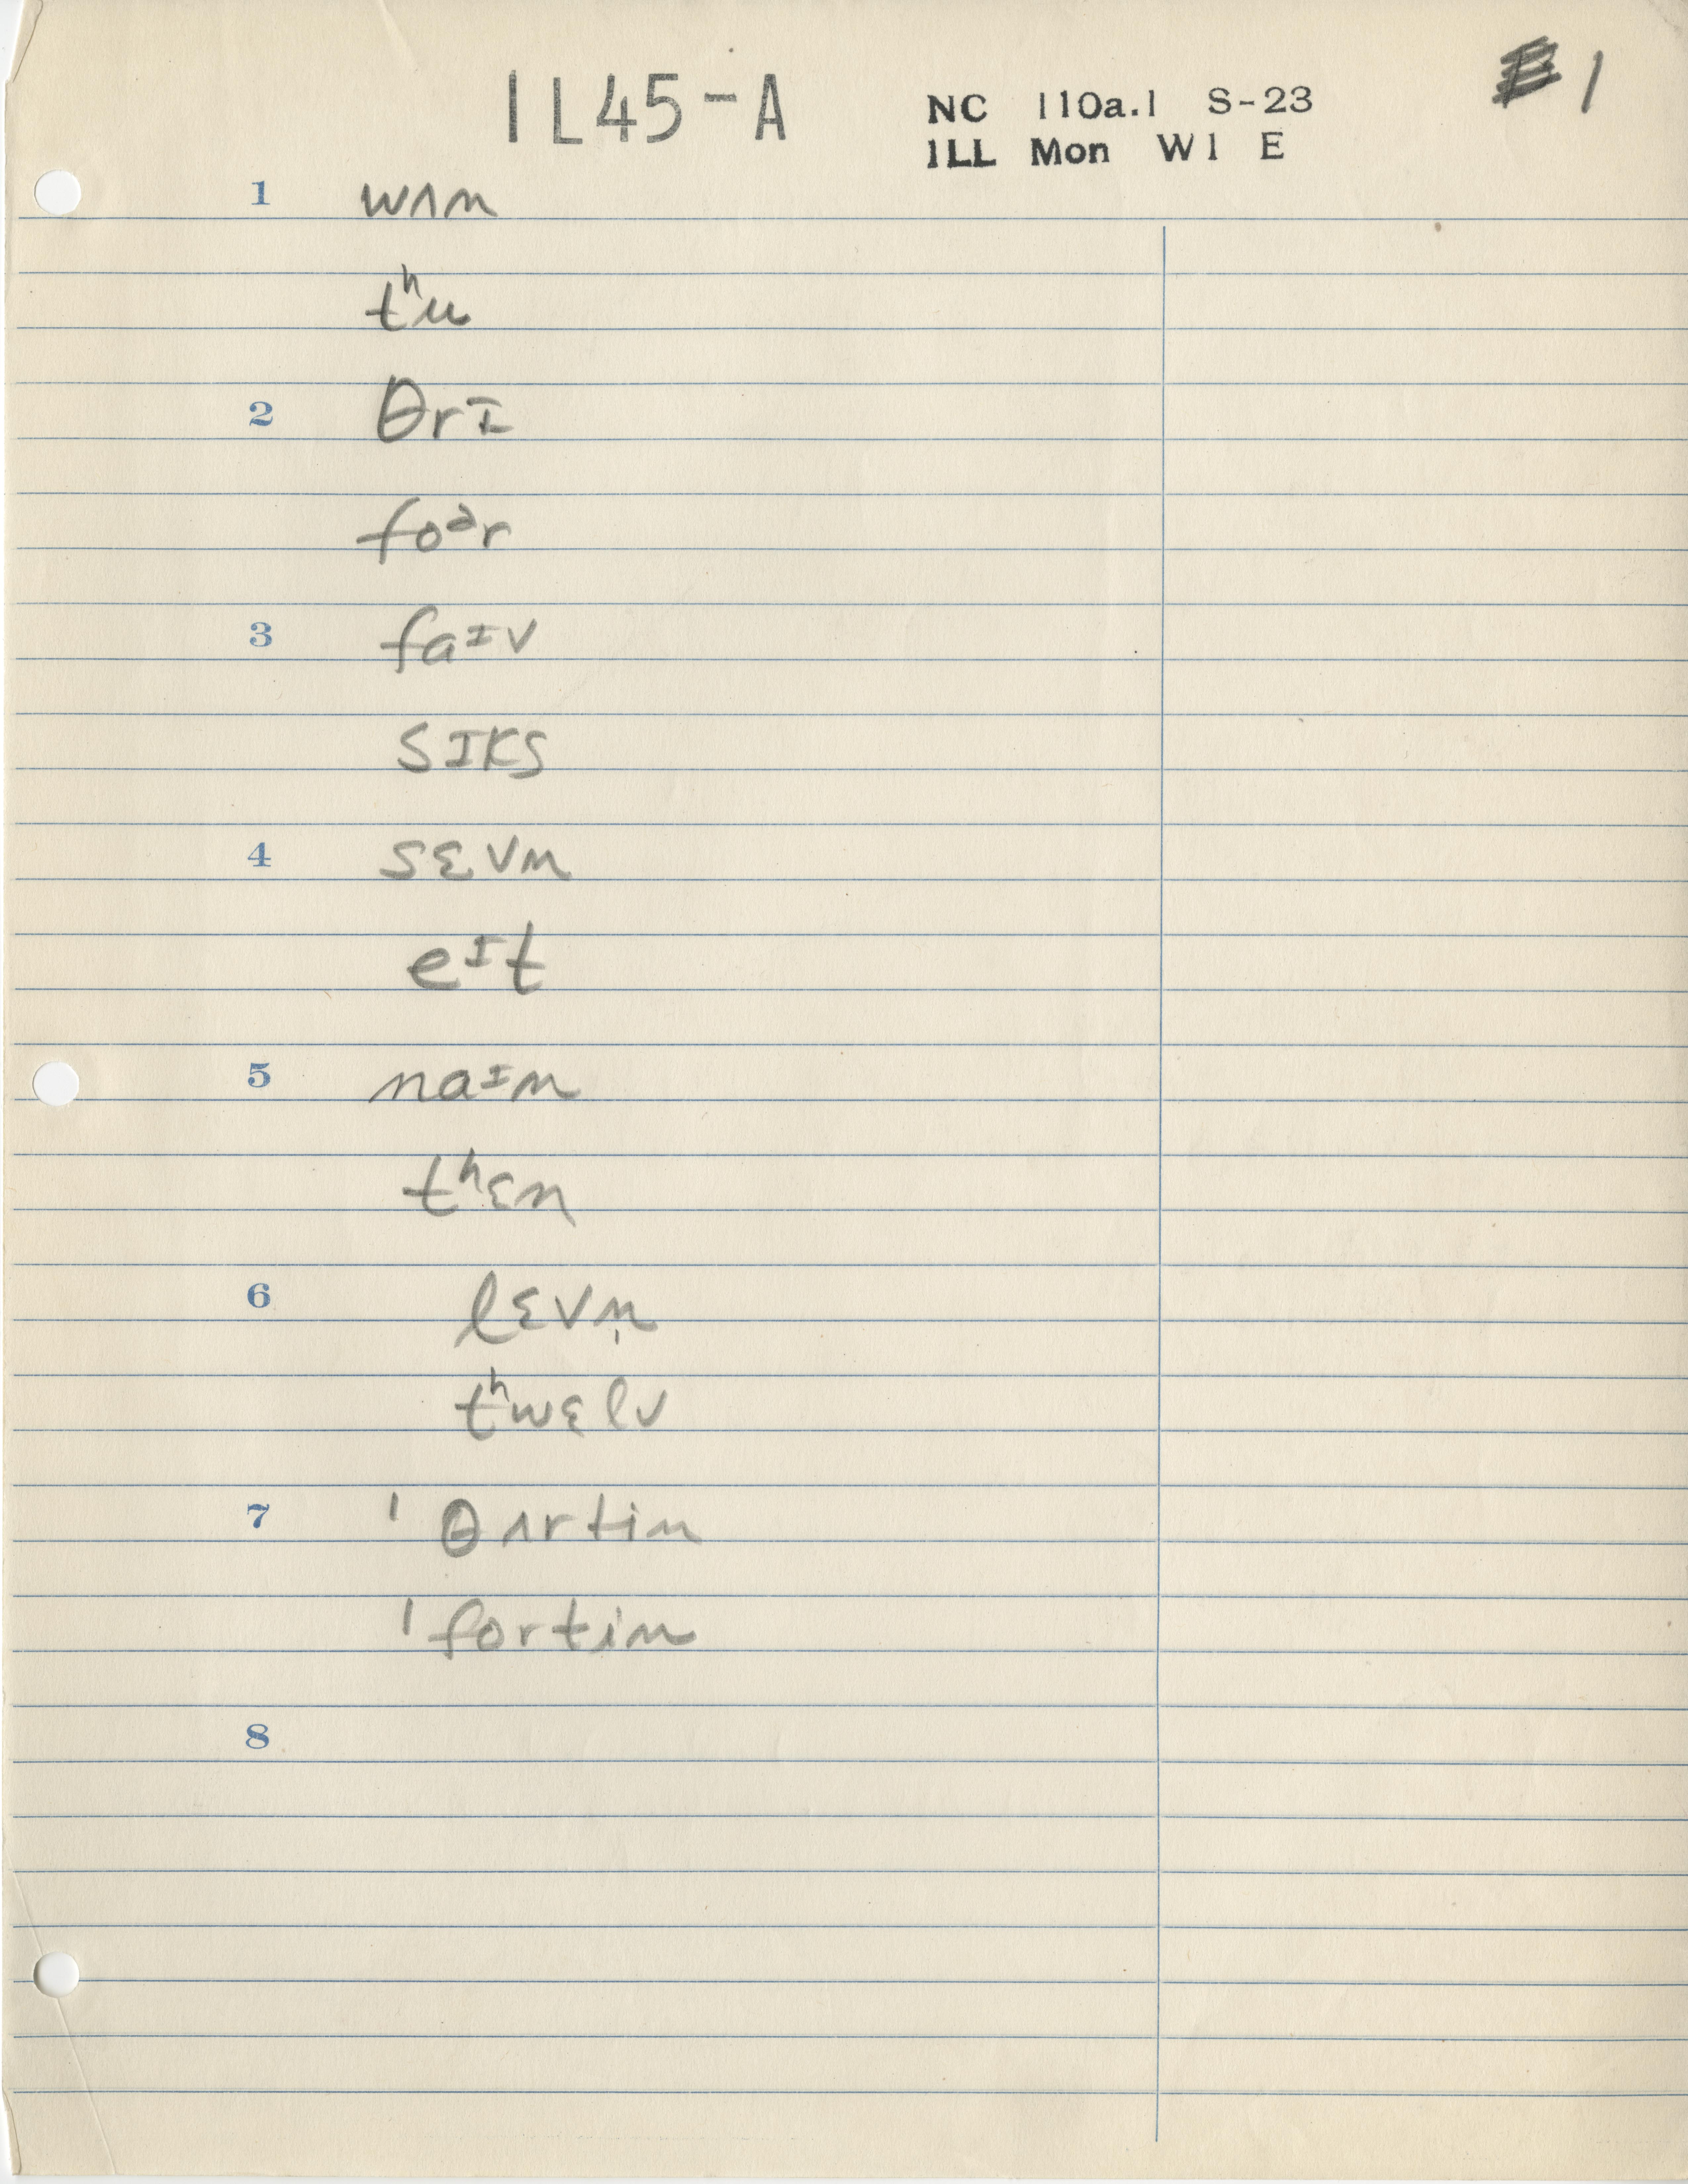 1L45-A
NC 110a.1 S-23
1LL Mon W1 E
1
1 wʌn
tʰu
2 θrɪ
foᵊr
3 faᶦv
sɪks
4 sɛvn
eᶦt
5 naᶦn
tʰɛn
6 lɛvn̩
tʰwɛlv
7 ˈθʌrtin
ˈfortin
8